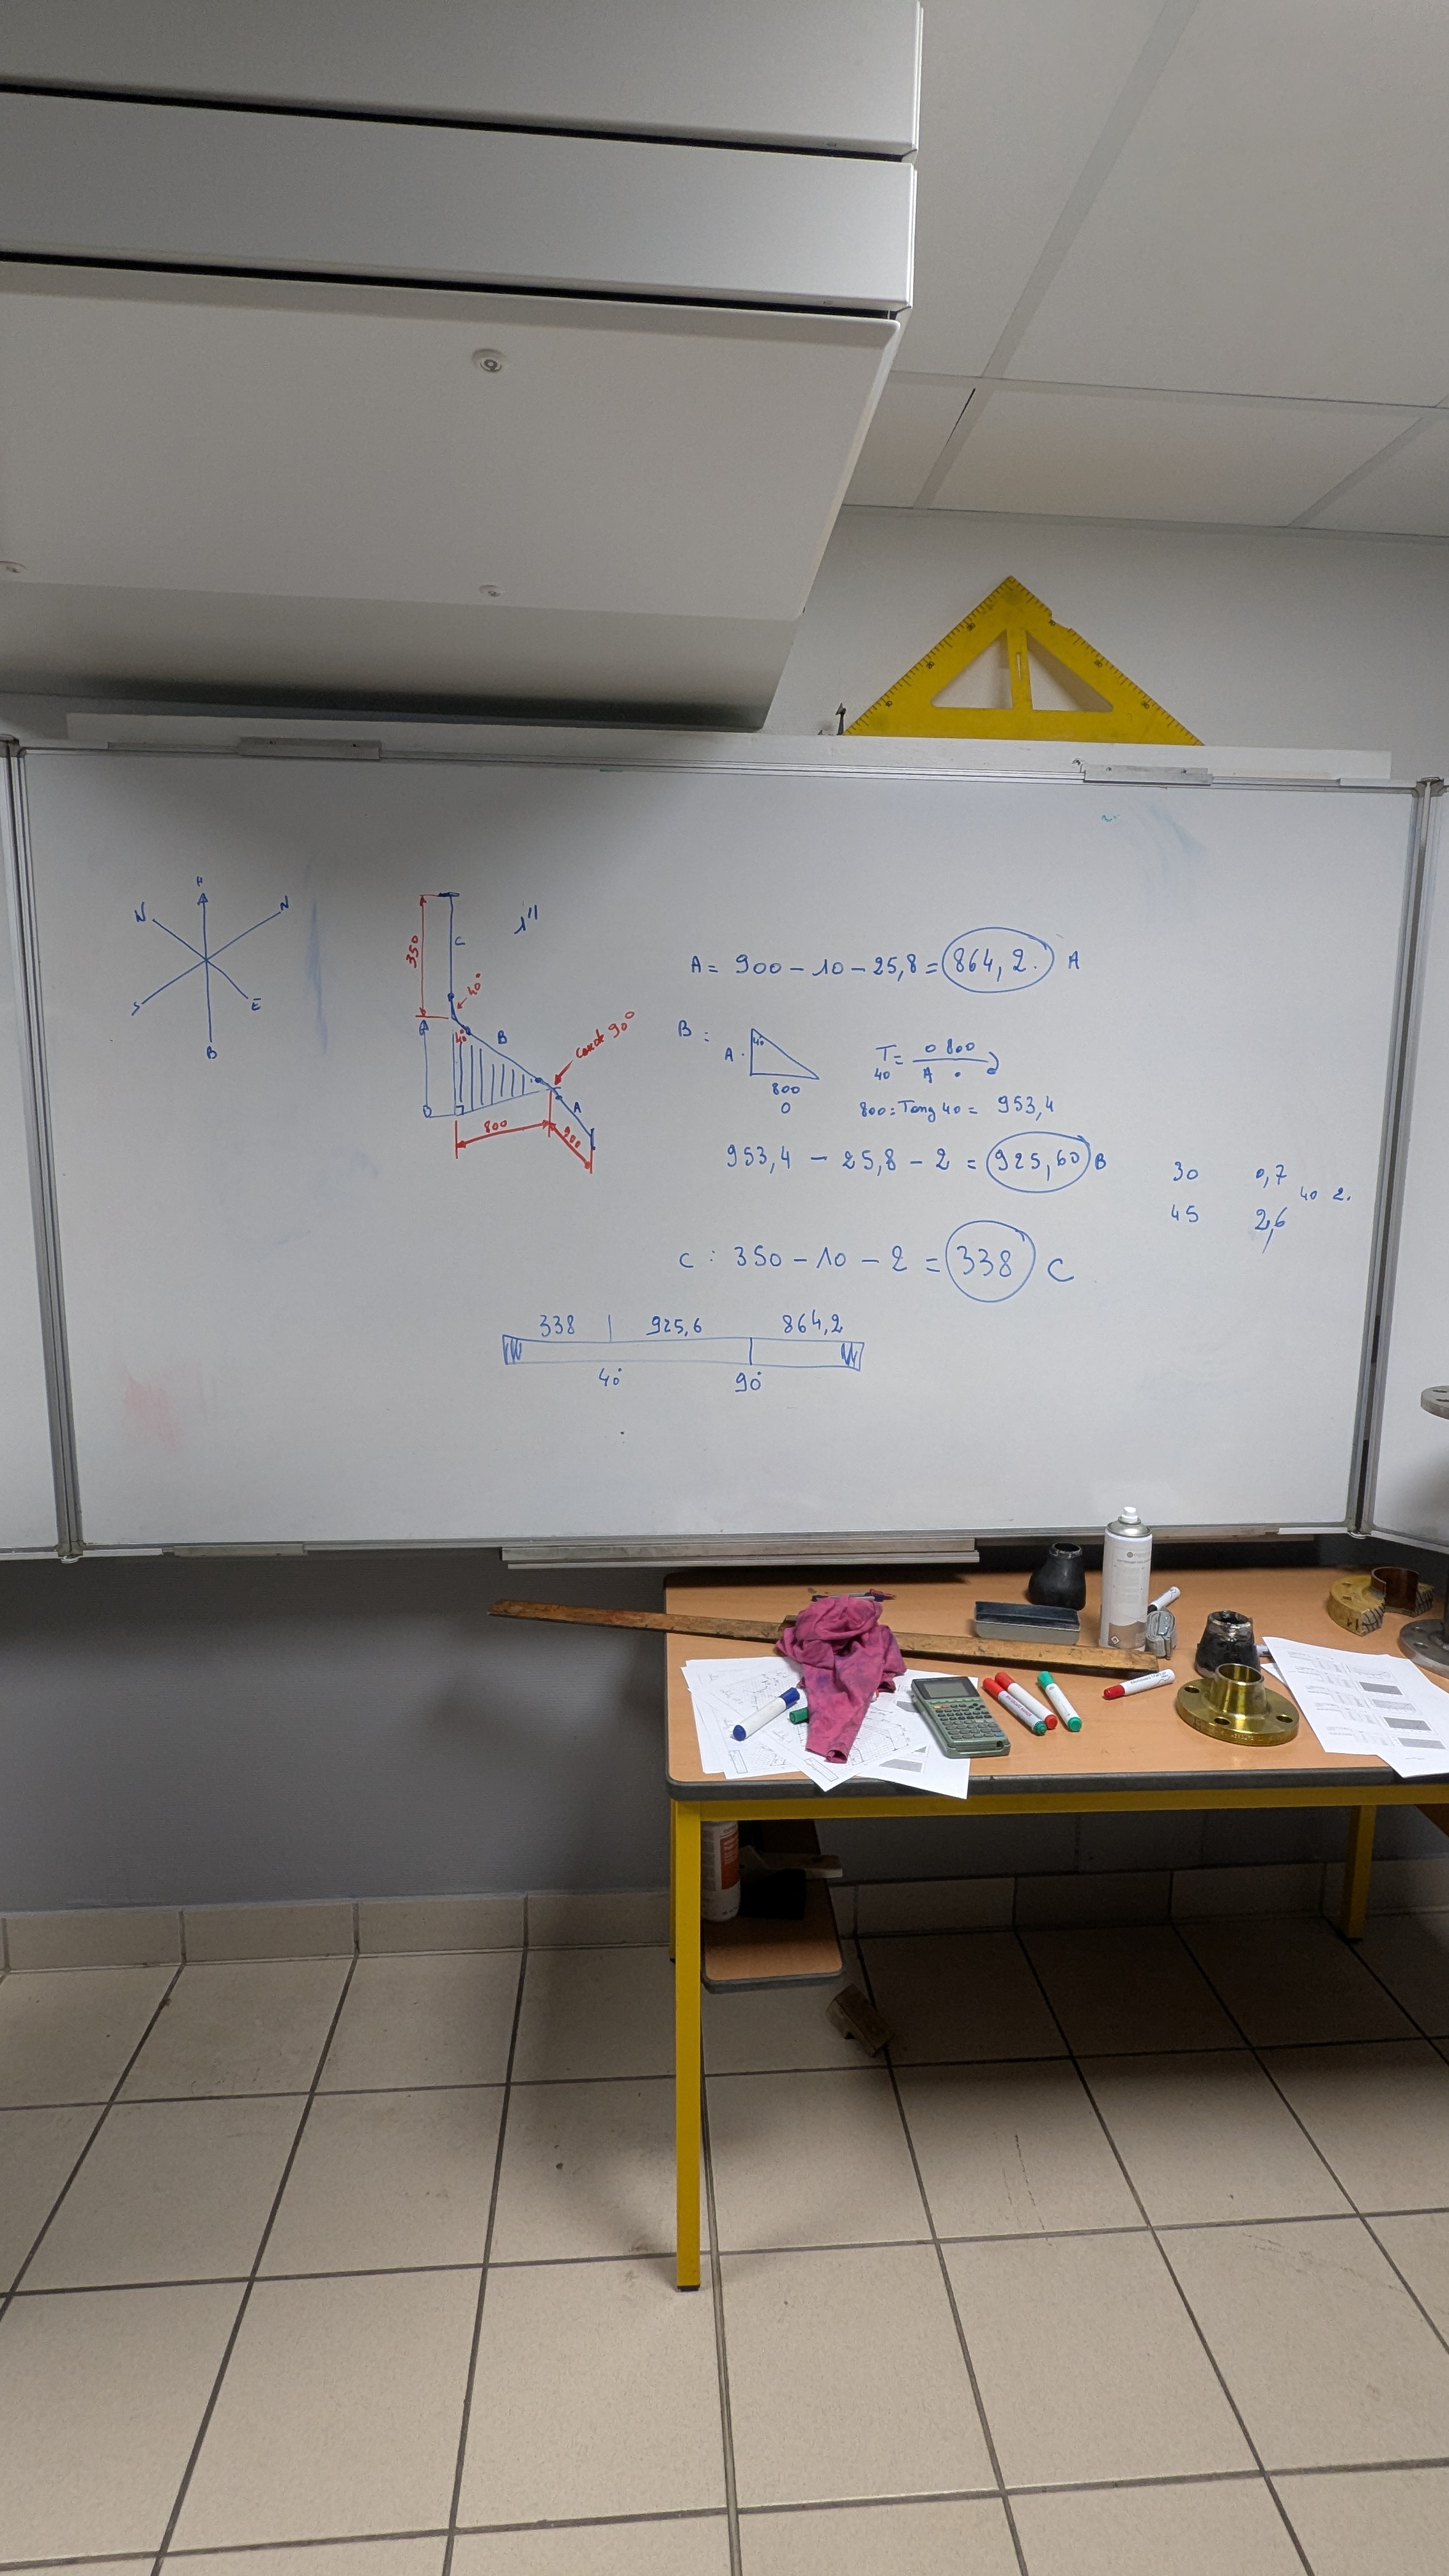 H
N
N
S
E
B
350
C
1"
40°
40
B
Coude 90°
A
800
900
A = 900 - 10 - 25,8 = 864,2. A
B :
A .
40
800
O
T = O 800
40 A
800 : Tang 40 = 953,4
953,4 - 25,8 - 2 = 925,60 B
30 0,7
40 2.
45 2,6
C : 350 - 10 - 2 = 338 C
338 925,6 864,2
40° 90°